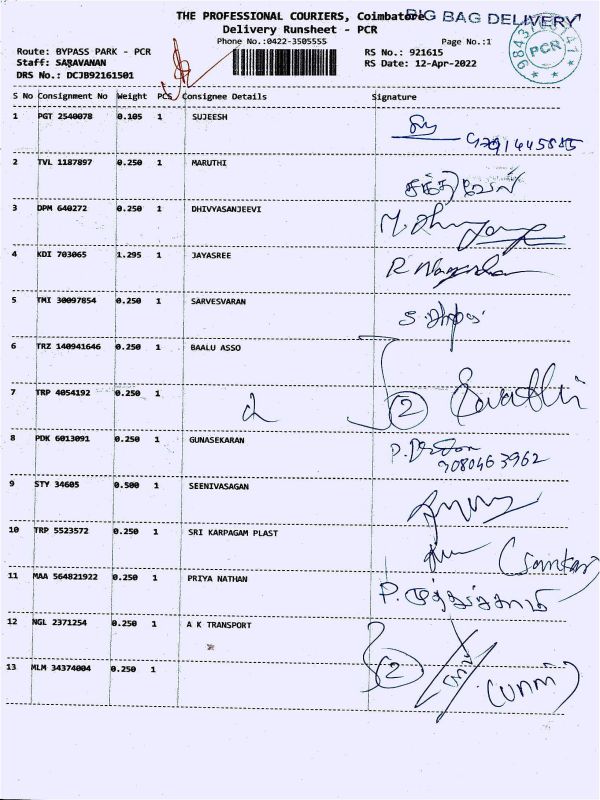 THE PROFESSIONAL COURIERS, Coimbatore
BIG BAG DELIVERY
Delivery Runsheet - PCR
Phone No.:0422-3505555
Page No.:1
Route: BYPASS PARK - PCR
RS No.: 921615
Staff: SARAVANAN
RS Date: 12-Apr-2022
DRS No.: DCJB92161501
PCR
S No Consignment No Weight PCS Consignee Details Signature
1 PGT 2540078 0.105 1 SUJEESH
9791445885
2 TVL 1187897 0.250 1 MARUTHI
3 DPM 640272 0.250 1 DHIVYASANJEEVI
4 KDI 703065 1.295 1 JAYASREE
5 TMI 30097854 0.250 1 SARVESVARAN
6 TRZ 140941646 0.250 1 BAALU ASSO
7 TRP 4054192 0.250 1
2
8 PDK 6013091 0.250 1 GUNASEKARAN
9080463962
9 STY 34605 0.500 1 SEENIVASAGAN
10 TRP 5523572 0.250 1 SRI KARPAGAM PLAST
11 MAA 564821922 0.250 1 PRIYA NATHAN
12 NGL 2371254 0.250 1 A K TRANSPORT
2
13 MLM 34374004 0.250 1